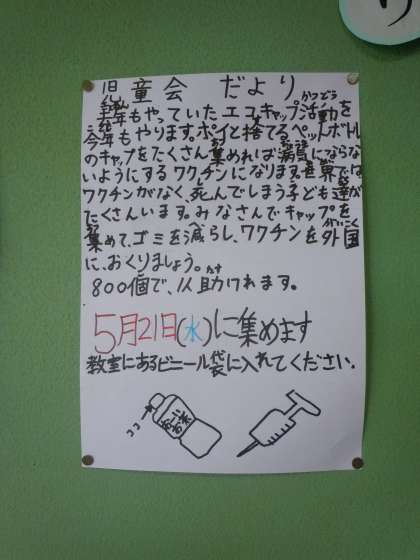 児童会 だより
去年もやっていたエコキャップ活動を
かつどう
今年もやります。ポイと捨てるペットボトル
のキャップをたくさん集めれば病気にならな
いようにするワクチンになります。世界では
ワクチンがなく、死んでしまう子ども達が
たくさんいます。みなさんでキャップを
集めて、ゴミを減らし、ワクチンを外国
に、おくりましょう。
800個で、1人助けれます。
5月21日(水)に集めます
教室にあるビニール袋に入れてください。
ココ